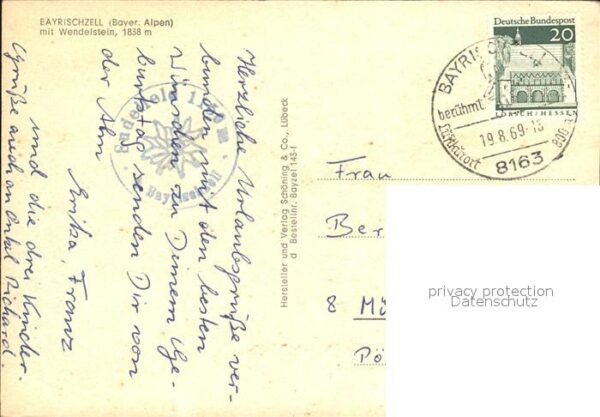 BAYRISCHZELL (Bayer. Alpen)
mit Wendelstein, 1838 m
Herzliche Urlaubsgrüße ver-
bunden mit den besten
Wünschen zu Deinem Ge-
burtstag senden Dir von
der Alm
Erika, Franz
und die drei Kinder.
Grüße auch an Onkel Richard.
Bayrischzell
Hersteller und Verlag Schöning & Co., Lübeck
d Bestellnr. Bayzel 143-f
Deutsche Bundespost
20
LORSCH/HESSEN
BAYRISC
berühmt
19.8.69-18
Luftkurort
800
8163
Frau
Ber
8 Mü
Pö
privacy protection
Datenschutz